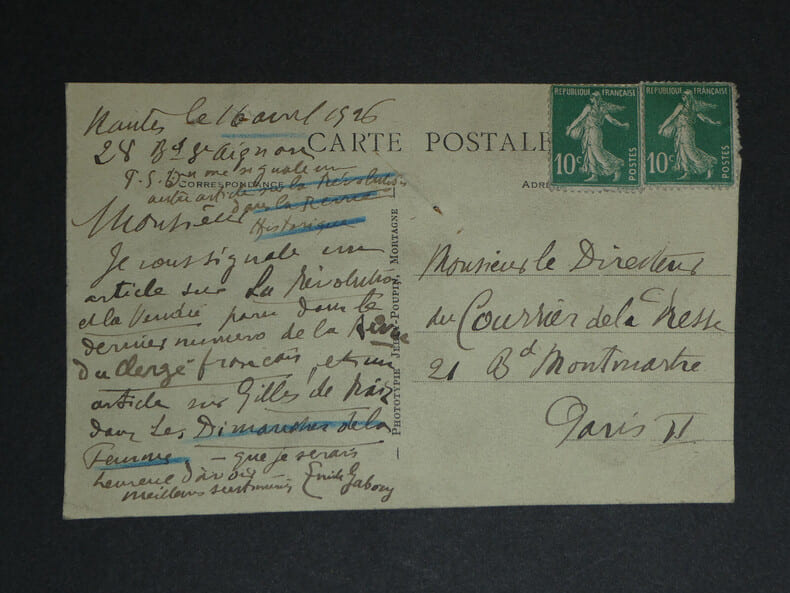 Nantes le 16 avril 1926
28 Bd St Aignan
CARTE POSTALE
P.S. On me signale un
autre article sur la Révolution
dans la Revue
Historique
CORRESPONDANCE
ADRE
Monsieur
Je vous signale un
article sur La Révolution
et la Vendée paru dans le
dernier numéro de la Revue
du Clergé français, et un
article sur Gilles de Raiz
dans Les Dimanches de la
Femme, – que je serais
heureux d'avoir
meilleurs sentiments Emile Gabory
— PHOTOTYPIE JEHLY-POUPIN, MORTAGNE —
REPUBLIQUE FRANÇAISE
10c
POSTES
REPUBLIQUE FRANÇAISE
10c
POSTES
Monsieur le Directeur
du Courrier de la Presse
21 Bd Montmartre
Paris II